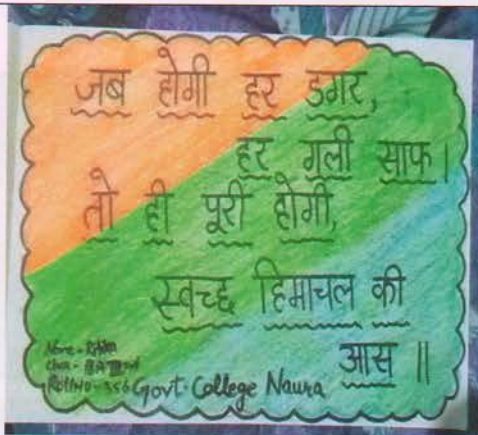 जब होगी हर डगर,
हर गली साफ।
तो ही पूरी होगी,
स्वच्छ हिमाचल की
आस ॥
Name -
Class -
Roll No - 356 Govt. College Naura